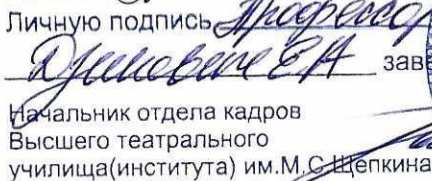 Личную подпись Профессор
Е А заве
Начальник отдела кадров
Высшего театрального
училища(института) им.М.С.Щепкина